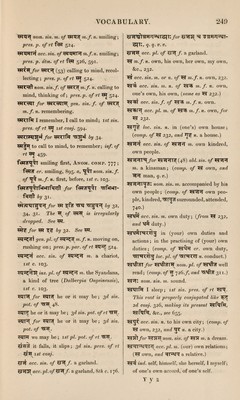 VOCABULARY. 249
स्मयन् nom. sin. m. of स्मयत् m. f. n. smiling;
pres. p. of rt स्मि 524.
स्मयमानं acc. sin. of स्मयमान m. f. n. smiling;
pres. p. átm. of rt स्मि 526, 591.
स्मरंस् for स्मरन् (53) calling to mind, recollecting;
pres. p. of rt स्मृ 524.
स्मरन्ती nom. sin. f. of स्मरत् m. f. n. calling to
mind, thinking of; pres. p. of rt स्मृ 524.
स्मरन्त्या for स्मरन्त्याः gen. sin. f. of स्मरत्
m. f. n. remembering.
स्मरामि I remember, I call to mind; 1st sin.
pres. of rt स्मृ 1st conj. 594.
for स्मरन् by 34.
स्मर्तुं to call to mind, to remember; inf. of
rt स्मृ 459.
स्मितपूर्वा smiling first, ANOM. COMP. 777;
स्मित er. smiling, 895. a, पूर्वा nom. sin. f.
of पूर्व m. f. n. first, before, 1st c. 103.
for स्मितपूर्वा
by 31.
for by 32,
34, 31. The of is irregularly
dropped. See स्म.
स्मेह for स्म इह by 32. See स्म.
स्यन्दतां gen. pl. of स्यन्दत् m. f. n. moving on,
rushing on; pres. p. of rt स्यन्द् 524.
स्यन्दनं acc. sin. of स्यन्दन m. a chariot,
1st c. 103.
स्यन्दनान् acc. pl. of स्यन्दन m. the Syandana,
a kind of tree (Dalbergia Ougeinensis),
1st c. 103.
स्याज् for स्यात् he or it may be; 3d sin.
pot. of अस् 46.
स्यात् he or it may be; 3d sin. pot. of rt अस्.
स्याद् for स्यात् he or it may be; 3d sin.
pot. of अस्.
स्याम we may be; 1st pl. pot. of rt अस्.
स्रंसते it falls, it slips; 3d sin. pres. of rt
स्रंस् 1st conj.
स्रजं acc. sin. of स्रज् f. a garland.
स्रजः acc. pl. of स्रज् f. a garland, 8th c. 176.
for स्रजम् q. q. v. v.
स्व m. f. n. own, his own, her own, my own,
&c., 232.
स्वं acc. sin. m. or n. of स्व m. f. n. own, 232.
स्वकं acc. sin. n. of स्वक m. f. n. own,
one's own, his own, (same as स्व 232.)
स्वकां acc. sin. f. of स्वक m. f. n. own.
स्वके loc. sin. n. of स्वक m. f. n. own, for
स्व 232.
स्वगृहे loc. sin. n. in (one's) own house;
(comp. of स्व 232, and गृह n. a house.)
स्वजनं acc. sin. of स्वजन m. own kindred,
own people.
स्वजनाञ् for स्वजनान् (48) abl. sin. of स्वजन
m. a kinsman; (comp. of स्व own, and
जन m. a man, p. 103.)
स्वजनावृतः nom. sin. m. accompanied by his
own people; (comp. of स्वजन own people,
kindred, आवृत surrounded, attended,
740.)
स्वधर्मं acc. sin. m. own duty; (from स्व 232,
and धर्म duty.)
in (your) own duties and
actions; in the practising of (your) own
duties; (comp. of स्वधर्म er. own duty,
loc. pl. of आचरण n. conduct.)
स्वधीतास् for स्वधीताः nom. pl. of स्वधीत well
read; (comp. of सु 726. f, and अधीत 311.)
स्वनः nom. sin. m. sound.
स्वपिमि I sleep; 1st sin. pres. of rt स्वप्.
This root is properly conjugated like रुद्
2d conj. 326, making its present स्वपिमि,
स्वपिषि, &c., see 655.
स्वपुरं acc. sin. n. to his own city; (comp. of
स्व own, 232, and पुर n. a city.)
स्वप्नो for स्वप्नः nom. sin. of स्वप्न m. a dream.
स्वबान्धवान् acc. pl. m. (our) own relations;
(स्व own, and बान्धव a relative.)
स्वयं ind. self, himself, she herself, I myself;
of one's own accord, of one's self.
Y y 2